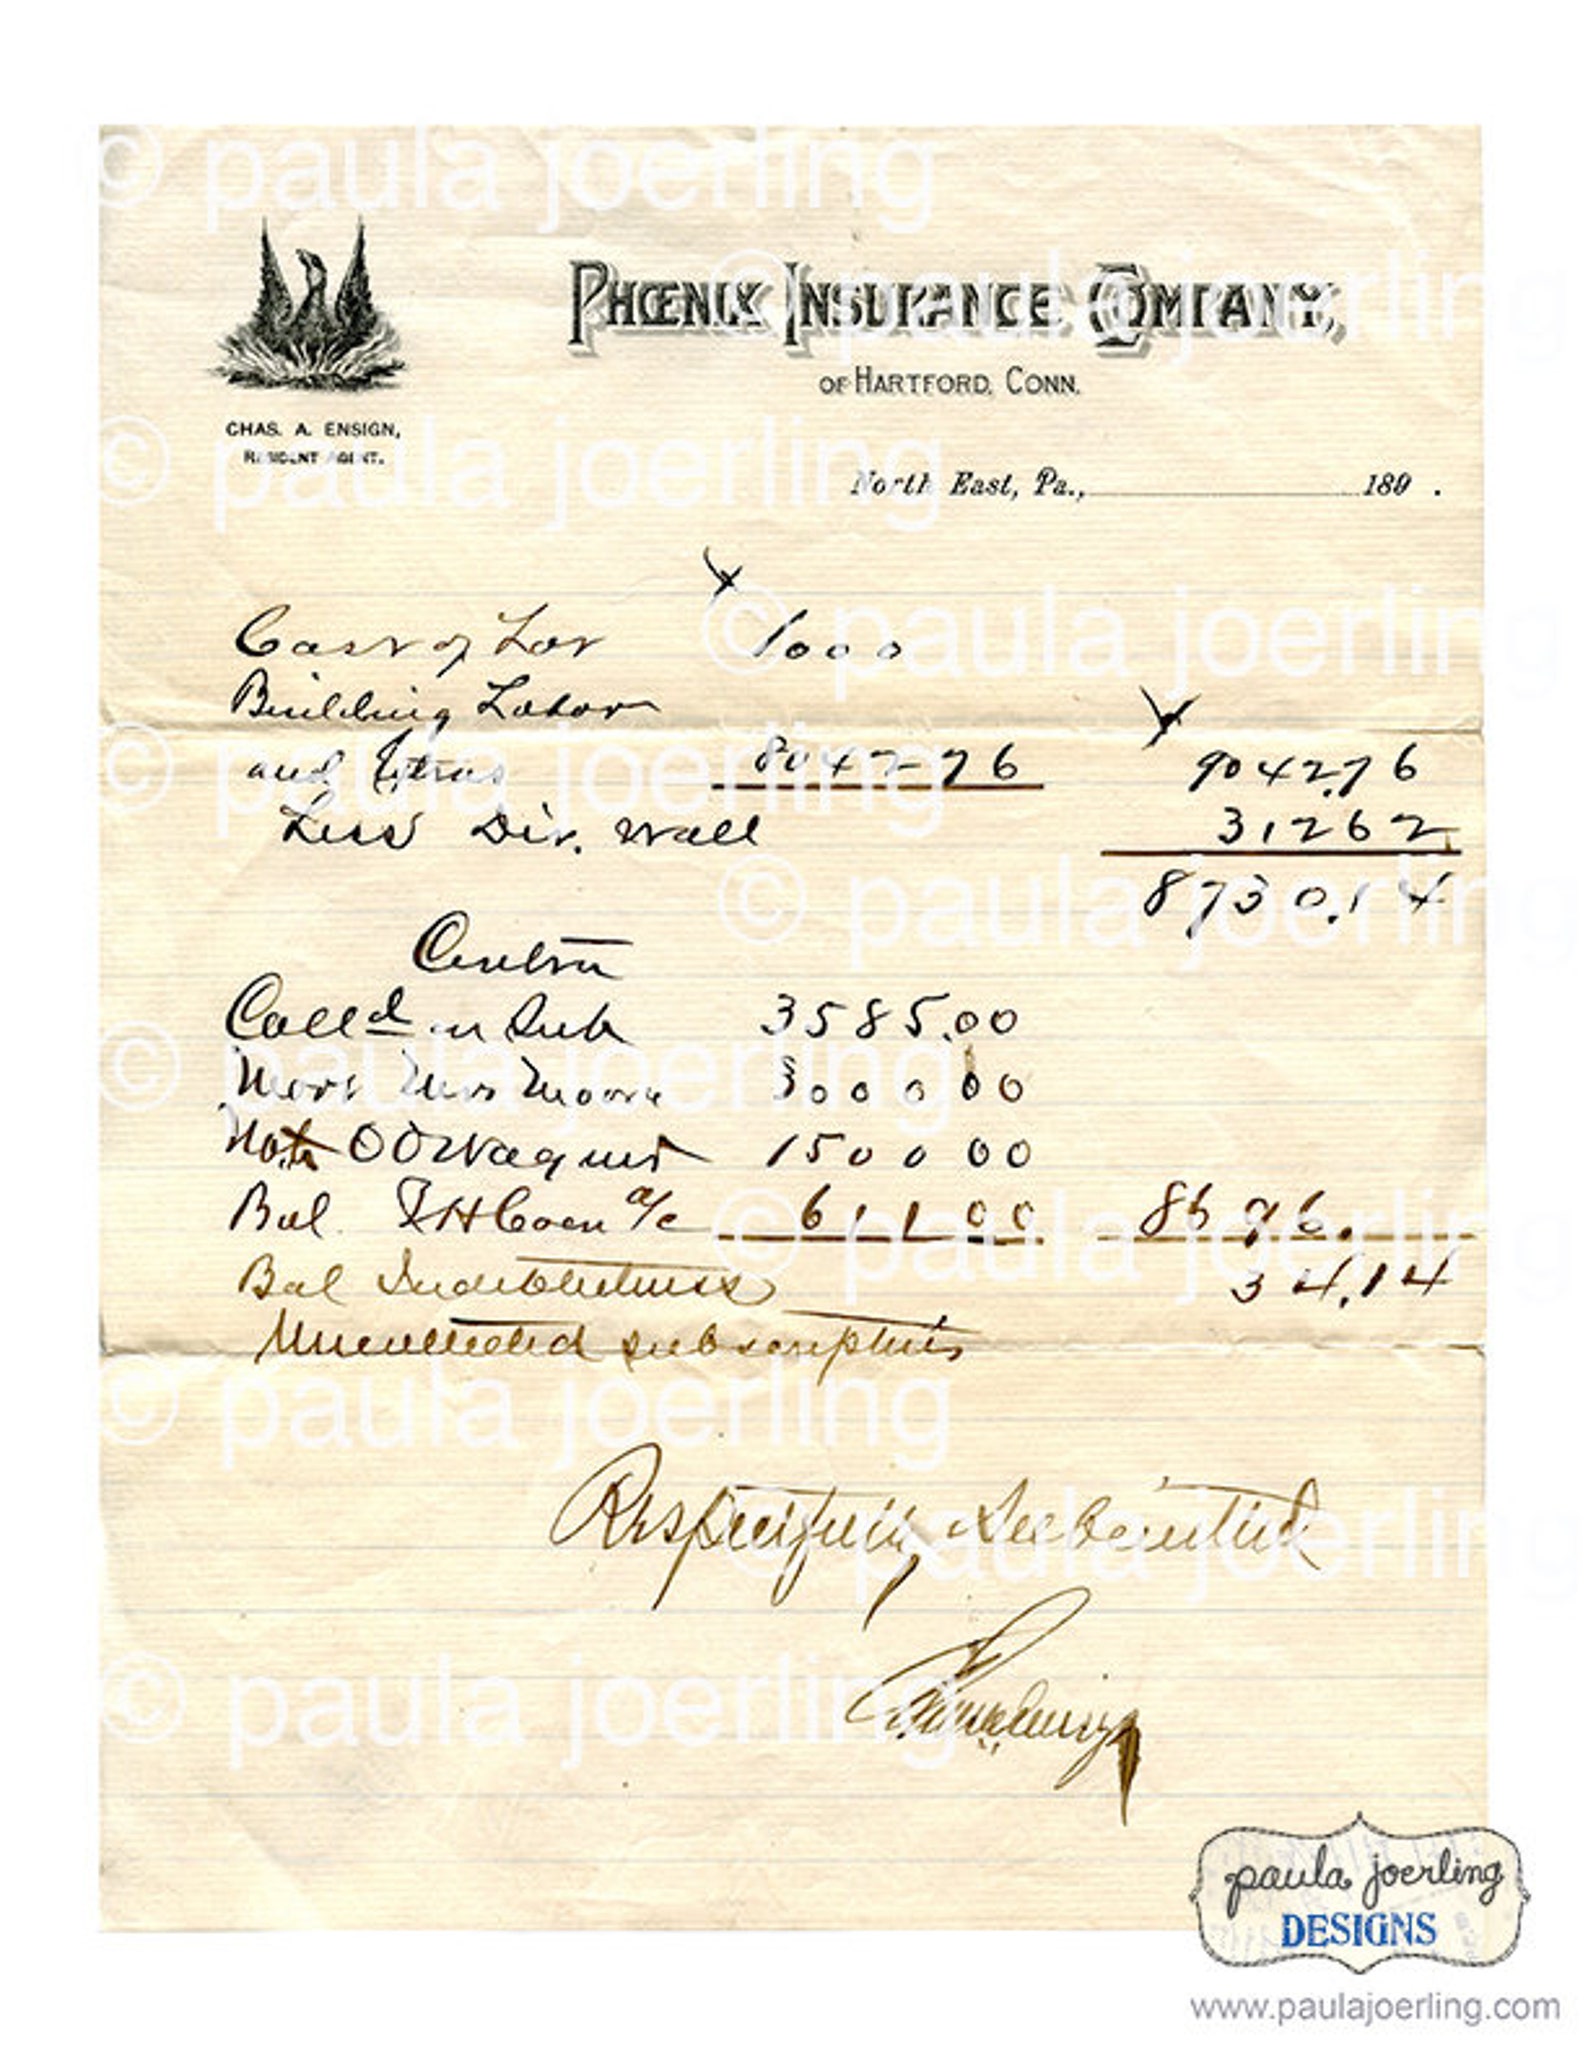 PHŒNIX INSURANCE COMPANY,
OF HARTFORD, CONN.
CHAS. A. ENSIGN,
RESIDENT AGENT.
North East, Pa., 189 .
Cost of Lot 1000
Building Labor
and 8042276 9042.76
Less Div. Wall 31262
8730.14
Contra
Colld on Sub 3585.00
Mort Mrs Moore 300000
Note 150000
Bal a/c 61100 8696.
Bal Indebtedness 34.14
Uncollected subscriptions
Respectfully Submitted
© paula joerling
© paula joerling
© paula joerling
© paula joerling
© paula joerling
© paula joerling
© paula joerling
© paula joerling
© paula joerling
© paula joerling
© paula joerling
© paula joerling
paula joerling
DESIGNS
www.paulajoerling.com